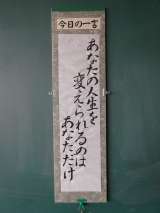 今日の一言
あなたの人生を
変えられるのは
あなただけ